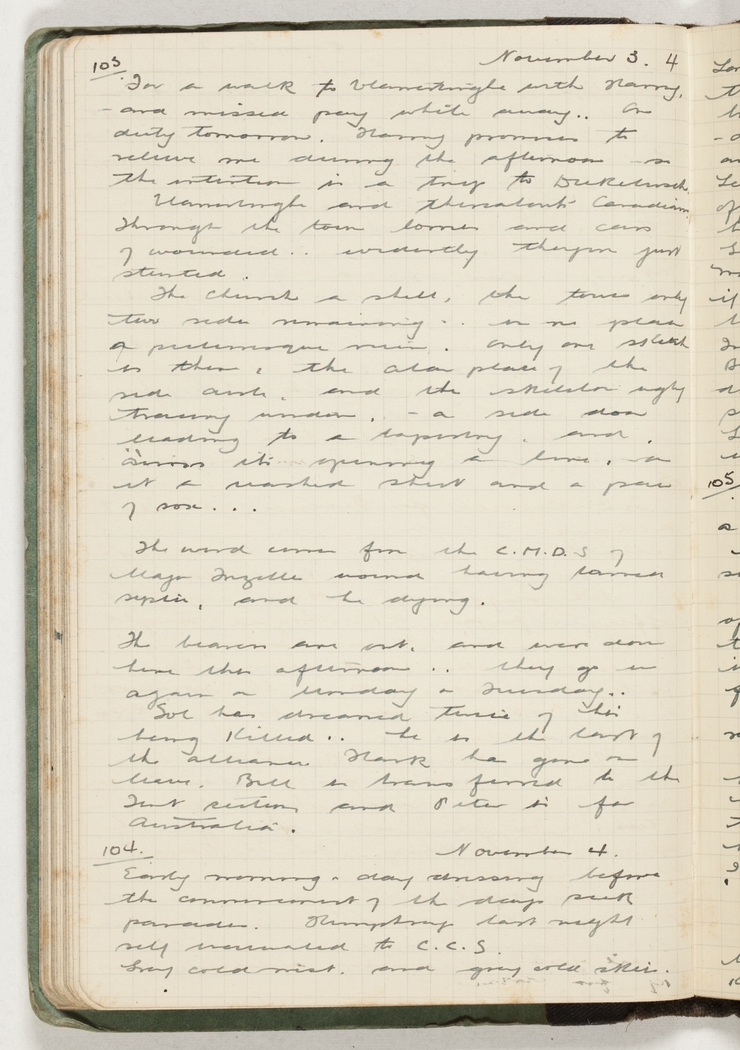 103 November 3. 4
For a walk to Vlamertinghe with Harry,
- and missed pay while away.. On
duty tomorrow. Harry promises to
relieve me during the afternoon - so
the intention is a trip to Dickebusch.
Vlamertinghe and thereabouts Canadian,
through the town lorries and cars
of wounded.. evidently they've just
started.
The church a shell, the tower only
two sides remaining .. in no place
a picturesque ruin. Only one
is there, the altar place of the
side aisle, and the skeleton ugly
tracing window, - a side door
leading to a . and,
across its opening a line, on
it a washed shirt and a pair
of sox...
The word comes from the C.M.D.S of
Major wound having turned
septic, and he dying.
The bearers are out, and were down
here this afternoon .. they go in
again on Monday or Tuesday..
Sol has dreamed twice of his
being killed.. he is the last of
the alliance Hark has gone on
leave, Bill is transferred to the
Tent section and Peter is for
Australia.
104. November 4.
Early morning - day dressing before
the commencement of the days sick
parades. Humphrey last night
self evacuated to C.C.S.
Gray cold mist, and gray cold skies.